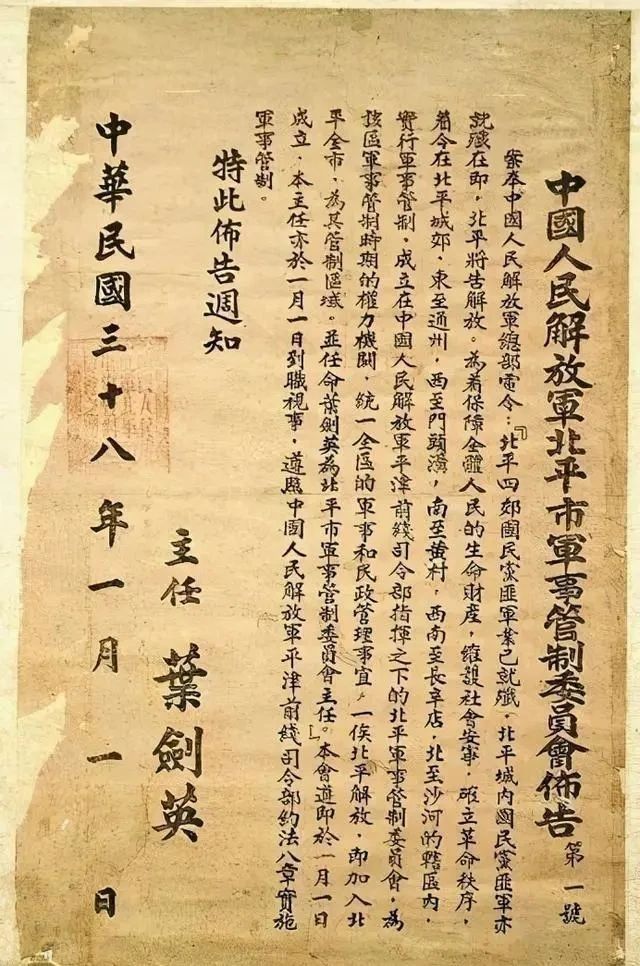 中國人民解放軍北平市軍事管制委員會佈告
第一號
案奉中國人民解放軍總部電令：『北平四郊國民黨匪軍業已就殲，北平城内國民黨匪軍亦
就殲在即，北平將告解放。為着保障全體人民的生命財産，維護社會安寧，確立革命秩序，
着令在北平城郊，東至通州，西至門頭溝，南至黄村，西南至長辛店，北至沙河的轄區内，
實行軍事管制，成立在中國人民解放軍平津前綫司令部指揮之下的北平軍事管制委員會，為
該區軍事管制時期的權力機關，統一全區的軍事和民政管理事宜。一俟北平解放，即加入北
平全市，為其管制區域。並任命葉劍英為北平市軍事管制委員會主任。』本會遵即於一月一日
成立，本主任亦於一月一日到職視事，遵照中國人民解放軍平津前綫司令部約法八章實施
軍事管制。
特此佈告週知
主任 葉劍英
中華民國三十八年一月一日